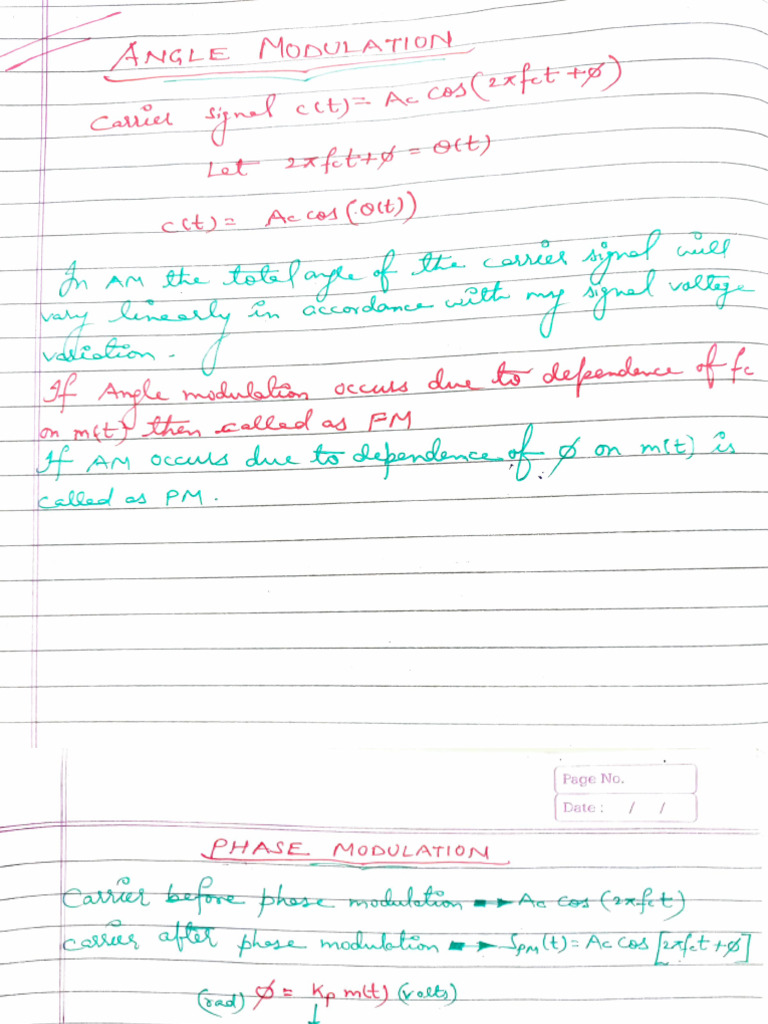 ANGLE MODULATION
Carrier signal c(t) = Ac cos(2πfct + ϕ)
Let 2πfct + ϕ = θ(t)
c(t) = Ac cos(θ(t))
In AM the total angle of the carrier signal will
vary linearly in accordance with my signal voltage
variation.
If Angle modulation occurs due to dependence of fc
on m(t) then called as FM
If AM occurs due to dependence of ϕ on m(t) is
called as PM.
Page No.
Date : / /
PHASE MODULATION
Carrier before phase modulation → Ac cos (2πfct)
carrier after phase modulation → SPM(t) = Ac cos [2πfct + ϕ]
(rad) ϕ = Kp m(t) (volts)
↓